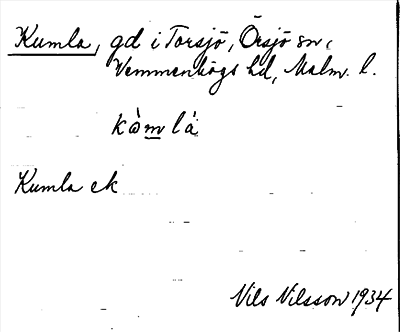 Kumla, gd i Torsjö, Örsjö sn,
Vemmenhögs hd, Malm. l.
kòm lá
Kumla ek
Nils Nilsson 1934